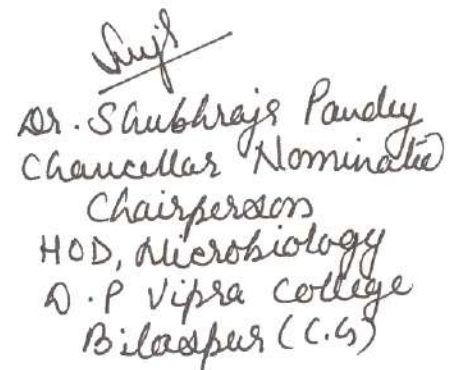 Dr. Shubhraje Pandey
Chancellar Nominated
Chairperson
HOD, Microbiology
D.P Vipra College
Bilaspur (C.G)